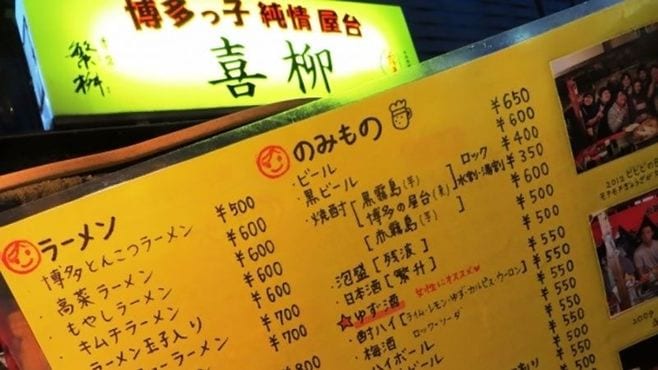 博多っ子純情屋台
喜柳
繁桝
のみもの
・ビール ¥650
・黒ビール ¥600
・焼酎 [黒霧島(芋) ロック ¥400
博多の屋台(麦)] 水割・湯割 ¥350
[赤霧島(芋)] ¥600
・泡盛 [残波] ¥550
・日本酒 [繁升] ¥550
☆ゆず酒 女性にオススメ♥ ¥550
・酎ハイ [ライム・レモン・ゆず・カルピス・ウーロン] ¥550
・梅酒 ロック・ソーダ ¥550
ハイボール ¥550
ビール
ラーメン
博多とんこつラーメン ¥500
高菜ラーメン ¥600
もやしラーメン ¥600
キムチラーメン ¥600
ラーメン玉子入り ¥700
ラーメン ¥700
¥800
2012
2009